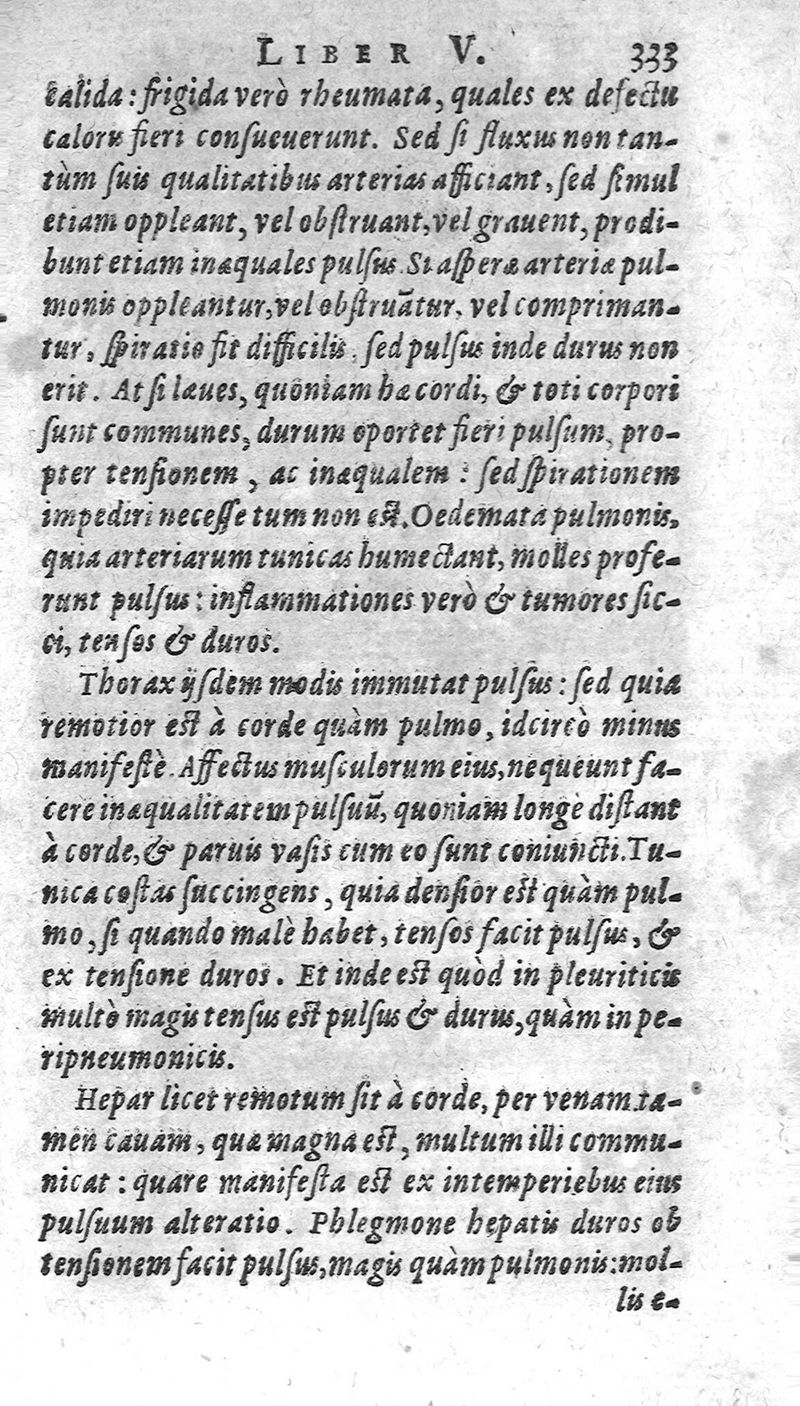 LIBER V. 333
calida: frigida verò rheumata, quales ex defectu
caloris fieri consueuerunt. Sed si fluxus non tan-
tùm suis qualitatibus arterias afficiant, sed simul
etiam oppleant, vel obstruant, vel grauent, prodi-
bunt etiam inæquales pulsus. Si asperæ arteriæ pul-
monis oppleantur, vel obstruãtur, vel compriman-
tur, spiratio fit difficilis, sed pulsus inde durus non
erit. At si læues, quoniam hæ cordi, & toti corpori
sunt communes, durum oportet fieri pulsum, pro-
pter tensionem, ac inæqualem: sed spirationem
impediri necesse tum non est. Oedemata pulmonis,
quia arteriarum tunicas humectant, molles profe-
runt pulsus: inflammationes verò & tumores sic-
ci, tensos & duros.
Thorax ijsdem modis immutat pulsus: sed quia
remotior est à corde quàm pulmo, idcircò minus
manifestè. Affectus musculorum eius, nequeunt fa-
cere inæqualitatem pulsuũ, quoniam longè distant
à corde, & paruis vasis cum eo sunt coniuncti. Tu-
nica costas succingens, quia densior est quàm pul-
mo, si quando malè habet, tensos facit pulsus, &
ex tensione duros. Et inde est quòd in pleuriticis
multò magis tensus est pulsus & durus, quàm in pe-
ripneumonicis.
Hepar licet remotum sit à corde, per venam ta-
men cauam, quæ magna est, multum illi commu-
nicat: quare manifesta est ex intemperiebus eius
pulsuum alteratio. Phlegmone hepatis duros ob
tensionem facit pulsus, magis quàm pulmonis: mol-
lis e-